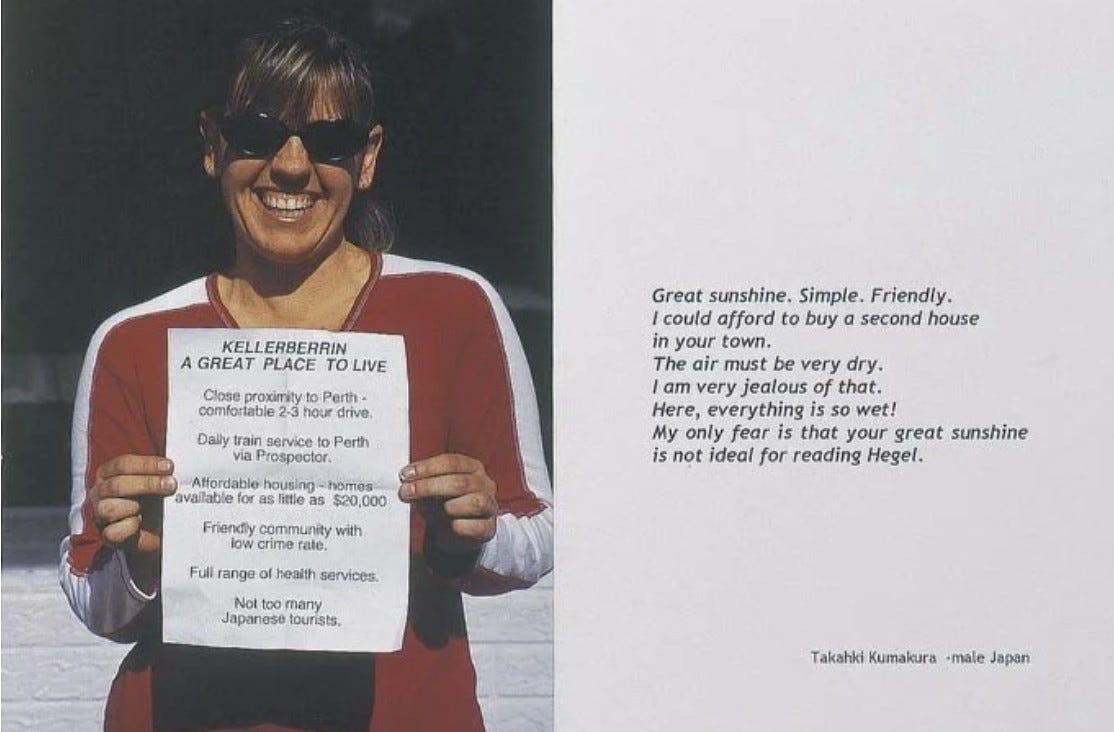 KELLERBERRIN
A GREAT PLACE TO LIVE
Close proximity to Perth -
comfortable 2-3 hour drive.
Daily train service to Perth
via Prospector.
Affordable housing - homes
available for as little as $20,000
Friendly community with
low crime rate.
Full range of health services.
Not too many
Japanese tourists.
Great sunshine. Simple. Friendly.
I could afford to buy a second house
in your town.
The air must be very dry.
I am very jealous of that.
Here, everything is so wet!
My only fear is that your great sunshine
is not ideal for reading Hegel.
Takahki Kumakura -male Japan